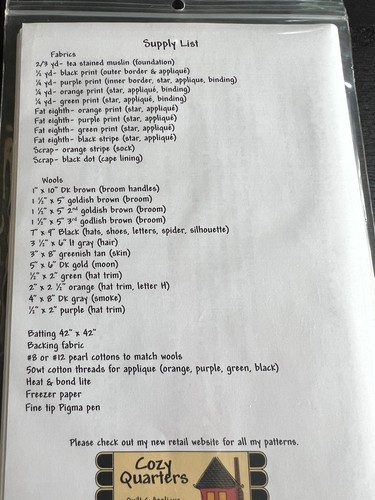 Supply List
Fabrics
2/3 yd- tea stained muslin (foundation)
½ yd- black print (outer border & appliqué)
¼ yd- purple print (inner border, star, applique, binding)
¼ yd- orange print (star, appliqué, binding)
¼ yd- green print (star, appliqué, binding)
Fat eighth- orange print (star, appliqué)
Fat eighth- purple print (star, appliqué)
Fat eighth- green print (star, appliqué)
Fat eighth- black stripe (star, appliqué)
Scrap- orange stripe (sock)
Scrap- black dot (cape lining)
Wools
1" x 10" Dk brown (broom handles)
1 ½" x 5" goldish brown (broom)
1 ½" x 5" 2nd goldish brown (broom)
1 ½" x 5" 3rd godlish brown (broom)
7" x 9" Black (hats, shoes, letters, spider, silhouette)
3 ½" x 6" lt gray (hair)
3" x 8" greenish tan (skin)
5" x 6" Dk gold (moon)
½" x 2" green (hat trim)
2" x 2 ½" orange (hat trim, letter H)
4" x 8" Dk gray (smoke)
½" x 2" purple (hat trim)
Batting 42" x 42"
Backing fabric
#8 or #12 pearl cottons to match wools
50wt cotton threads for applique (orange, purple, green, black)
Heat & bond lite
Freezer paper
Fine tip Pigma pen
Please check out my new retail website for all my patterns.
Cozy
Quarters
Quilt & Applique